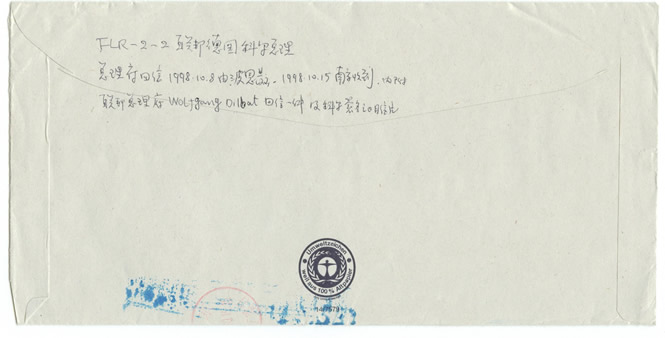 FLR-2-2 联邦德国科尔总理
总理府回信 1998.10.8 由波恩寄、1998.10.15 南京收到. 内附
联邦总理府 Wolfgang Dilbat 回信一件 及科尔签名照片
Umweltzeichen
weil aus 100 % Altpapier